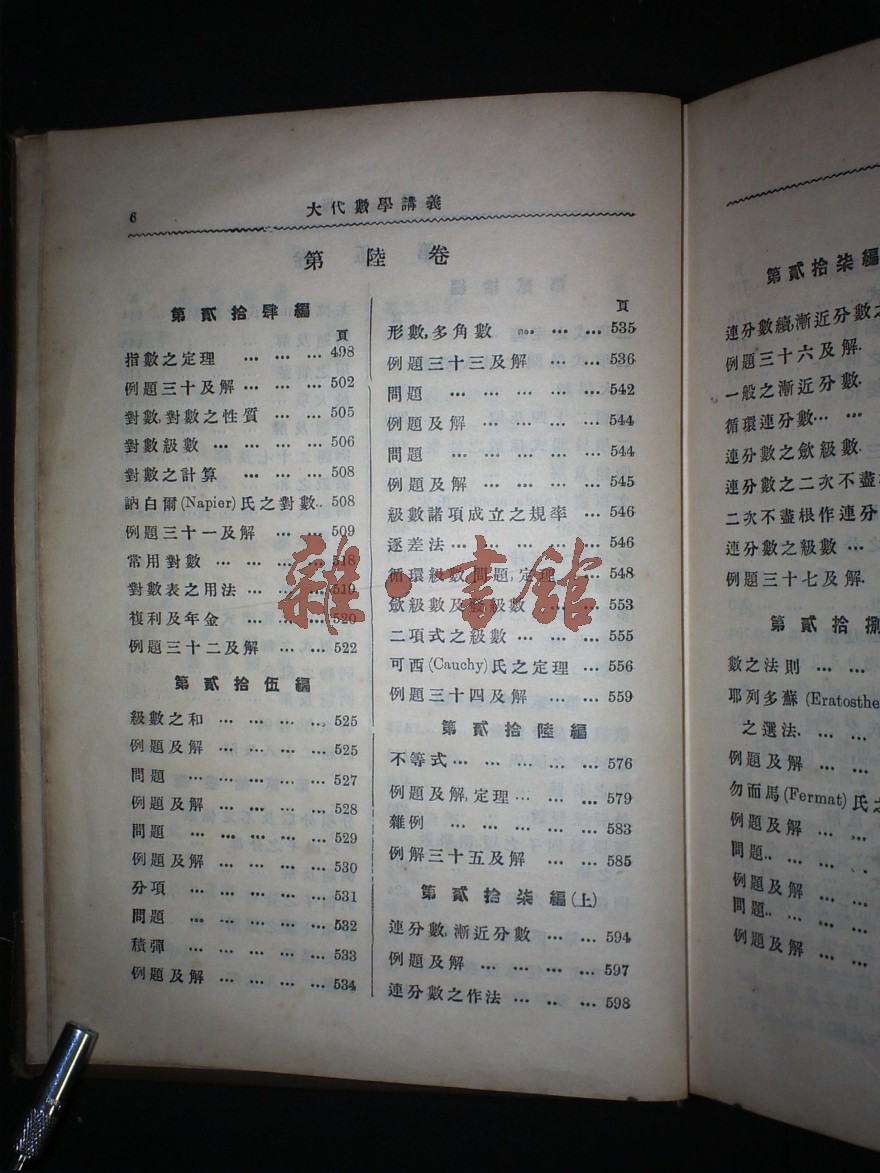 6
大代數學講義
第陸卷
第貳拾肆編
頁
指數之定理 … … … 498
例題三十及解 … … … 502
對數,對數之性質 … … 505
對數級數 … … … … 506
對數之計算 … … … 508
訥白爾(Napier)氏之對數.. 508
例題三十一及解 … … 509
常用對數 … … … … 518
對數表之用法 … … … 519
複利及年金 … … … 520
例題三十二及解 … … 522
第貳拾伍編
級數之和 … … … … 525
例題及解 … … … … 525
問題 … … … … … 527
例題及解 … … … … 528
問題 … … … … … 529
例題及解 … … … … 530
分項 … … … … … 531
問題 … … … … … 532
積彈 … … … … … 533
例題及解 … … … … 534
頁
形數,多角數 … … … 535
例題三十三及解 … … 536
問題 … … … … … 542
例題及解 … … … … 544
問題 … … … … … 544
例題及解 … … … … 545
級數諸項成立之規率 … 546
逐差法 … … … … … 546
循環級數,問題,定理 … 548
歛級數及發級數 … … 553
二項式之級數 … … … 555
可西(Cauchy)氏之定理 … 556
例題三十四及解 … … 559
第貳拾陸編
不等式 … … … … … 576
例題及解,定理 … … … 579
雜例 … … … … … 583
例解三十五及解 … … 585
第貳拾柒編(上)
連分數,漸近分數 … … 594
例題及解 … … … … 597
連分數之作法 … … … 598
雜·書館
第貳拾柒編
連分數續,漸近分數之
例題三十六及解.
一般之漸近分數.
循環連分數… …
連分數之歛級數.
連分數之二次不盡
二次不盡根作連分
連分數之級數 …
例題三十七及解.
第貳拾捌
數之法則 … …
耶列多蘇(Eratosthe
之選法. … …
例題及解 … …
勿而馬(Fermat)氏之
例題及解 … …
問題.. … …
例題及解 … …
問題.. … …
例題及解 … …